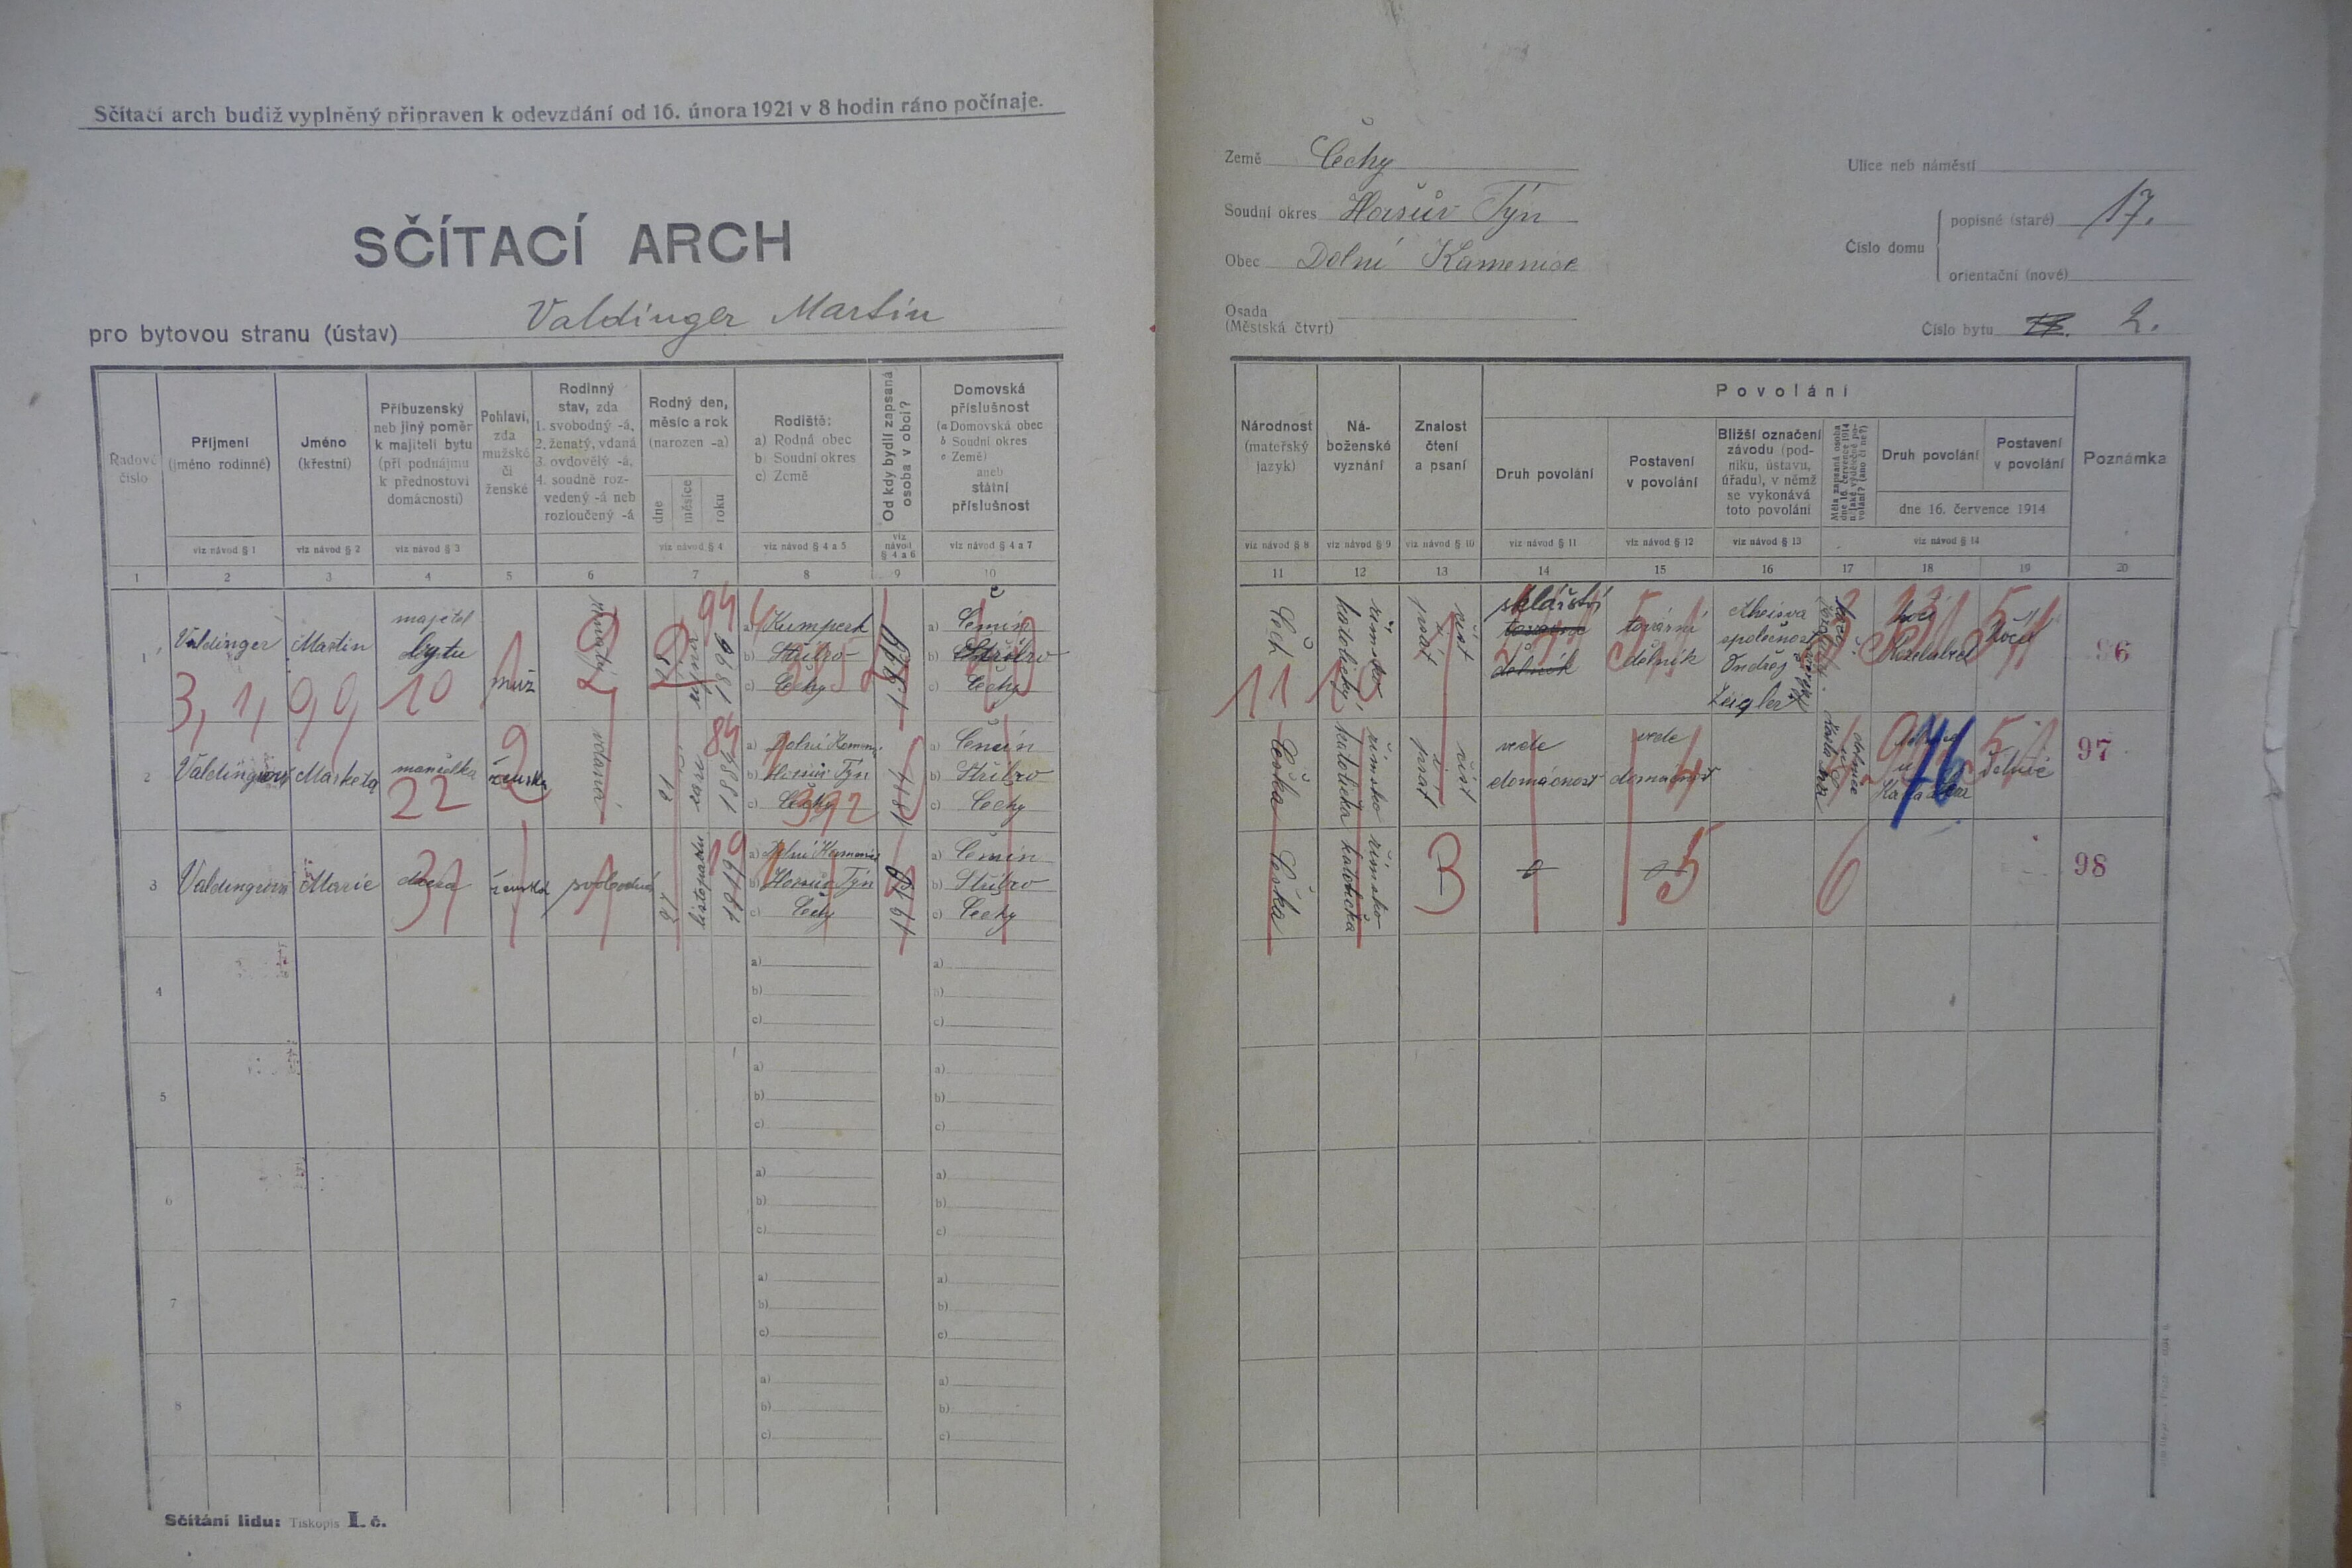 Sčítací arch budiž vyplněný připraven k odevzdání od 16. února 1921 v 8 hodin ráno počínaje.
SČÍTACÍ ARCH
pro bytovou stranu (ústav) Valdinger Martin
Země Čechy
Soudní okres Horšův Týn
Obec Dolní Kamenice
Osada
(Městská čtvrt)
Ulice neb náměstí
Číslo domu
popisné (staré) 17.
orientační (nové)
Číslo bytu 2.
Řadové číslo
Příjmení (jméno rodinné)
Jméno (křestní)
Příbuzenský neb jiný poměr k majiteli bytu (při podnájmu k přednostovi domácnosti)
Pohlaví, zda mužské či ženské
Rodinný stav, zda
1. svobodný -á,
2. ženatý, vdaná
3. ovdovělý -á,
4. soudně rozvedený -á neb rozloučený -á
Rodný den, měsíc a rok (narozen -a)
dne
měsíce
roku
Rodiště:
a) Rodná obec
b) Soudní okres
c) Země
Od kdy bydlí zapsaná osoba v obci?
Domovská příslušnost
(a Domovská obec
b Soudní okres
c Země)
aneb
státní příslušnost
viz návod § 1
viz návod § 2
viz návod § 3
viz návod § 4
viz návod § 4 a 5
viz návod § 4 a 6
viz návod § 4 a 7
1 2 3 4 5 6 7 8 9 10
Národnost (mateřský jazyk)
Náboženské vyznání
Znalost čtení a psaní
Povolání
Druh povolání
Postavení v povolání
Bližší označení závodu (podniku, ústavu, úřadu), v němž se vykonává toto povolání
Měla zapsaná osoba dne 16. července 1914 nějaké výdělečné povolání? (ano či ne?)
Druh povolání
Postavení v povolání
dne 16. července 1914
Poznámka
viz návod § 8
viz návod § 9
viz návod § 10
viz návod § 11
viz návod § 12
viz návod § 13
viz návod § 14
11 12 13 14 15 16 17 18 19 20
1
Valdinger
Martin
majetel
bytu
muž
ženatý
října
a) Kumperk
b) Stříbro
c) Čechy
a) Čemín
b) Stříbro
c) Čechy
Čech
římsko
katolický
číst
i
psát
sklářství
tovární
dělník
společnost
Ondřej
Zeigler
96
3, 1, 9, 9, 10
2
Valdingerová
Markéta
manželka
ženská
vdaná
21
září
a) Dolní Kamenice
b) Horšův Týn
c) Čechy
a) Čemín
b) Stříbro
c) Čechy
Češka
římsko
katolička
číst
i
psát
vede
domácnost
vede
domácnost
97
22
76
3
Valdingerová
Marie
dcera
ženská
svobodná
27
listopadu
1919
a) Dolní Kamenice
b) Horšův Týn
c) Čechy
1919
a) Čemín
b) Stříbro
c) Čechy
Češka
římsko
katolička
3
5
6
98
4
a)
b)
c)
a)
b)
c)
5
a)
b)
c)
a)
b)
c)
6
a)
b)
c)
a)
b)
c)
7
a)
b)
c)
a)
b)
c)
8
a)
b)
c)
a)
b)
c)
Sčítání lidu: Tiskopis I. č.